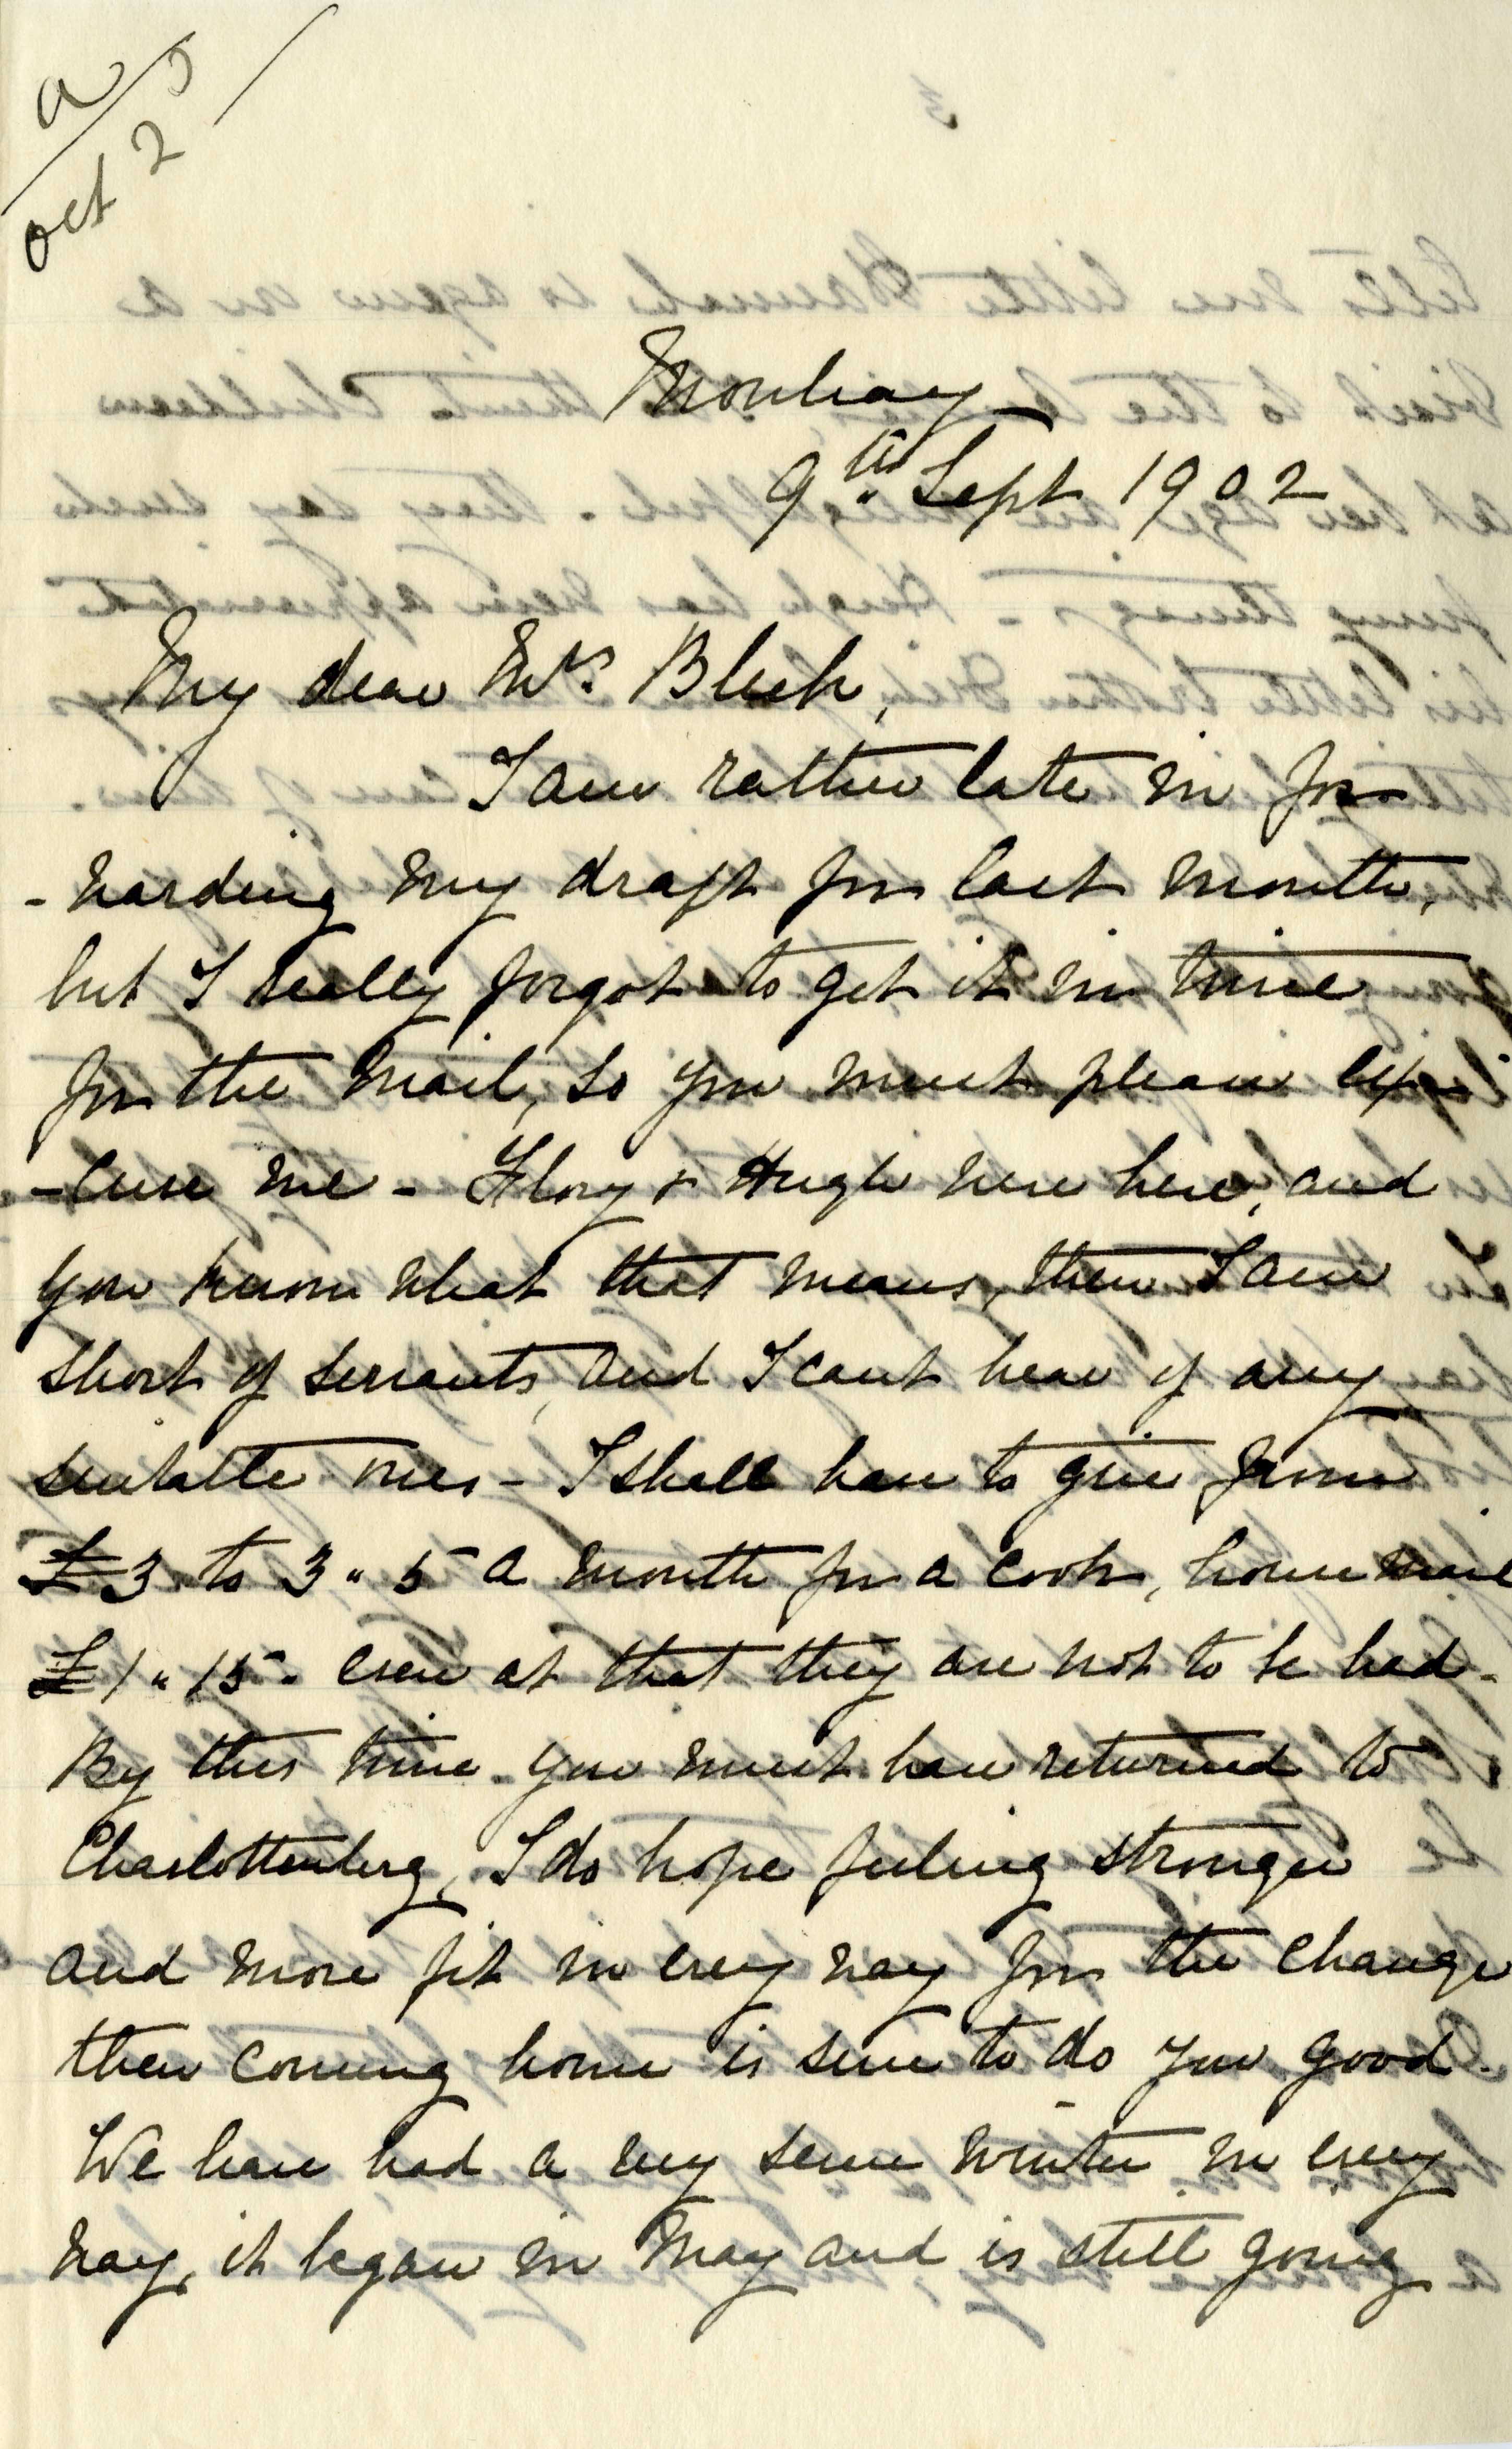 a/
Oct 25/
Mowbray
9th. Sept 1902
My dear Mrs. Bleek,
I am rather late in for
-warding my draft for last month,
but I really forgot to get it in time
for the Mail, so you must please ex
-cuse me - Flory & Hugh were here, and
you know what that means, then I am
short of servants, and I cant hear of any
suitable ones - I shall have to give from
£3 to 3 " 5 a month for a cook, house maid
£1 " 15 - even at that they are not to be had -
By this time you must have returned to
Charlottenberg, I do hope feeling stronger
and more fit in every way for the change
then coming home is sure to do you good -
We have had a very severe winter in every
way, it began in May and is still going